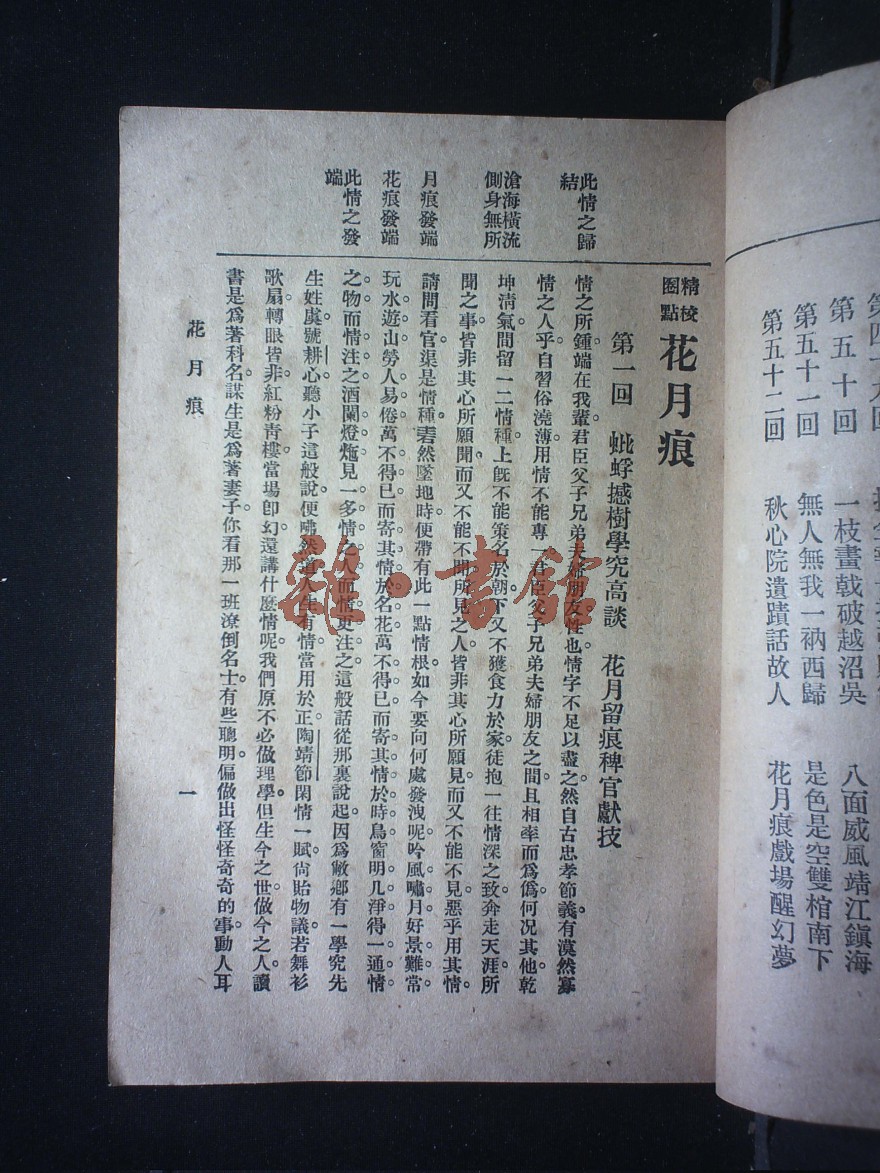 第五十回　一枝畫戟破越沼吳　八面威風靖江鎮海
第五十一回　無人無我一衲西歸　是色是空雙棺南下
第五十二回　秋心院遺蹟話故人　花月痕戲場醒幻夢
精校圈點 花月痕
第一回　蚍蜉撼樹學究高談　花月留痕稗官獻技
此情之歸結
情之所鍾端在我輩君臣父子兄弟夫婦朋友性也情字不足以盡之然自古忠孝節義有漠然寡
情之人乎自習俗澆薄用情不能專一君臣父子兄弟夫婦朋友之間且相率而爲僞何況其他乾
滄海橫流側身無所
坤清氣間留一二情種上旣不能策名於朝下又不獲食力於家徒抱一往情深之致奔走天涯所
聞之事皆非其心所願聞而又不能不聞所見之人皆非其心所願見而又不能不見惡乎用其情
月痕發端
請問看官渠是情種砉然墜地時便帶有此一點情根如今要向何處發洩呢吟風嘯月好景難常
花痕發端
玩水遊山勞人易倦萬不得已而寄其情於名花萬不得已而寄其情於時鳥窗明几淨得一通情
此情之發端
之物而情注之酒闌燈灺見一多情之人而情更注之這般話從那裏說起因爲敝鄉有一學究先
生姓虞號耕心聽小子這般說便咈然道人生有情當用於正陶靖節閑情一賦尙貽物議若舞衫
歌扇轉眼皆非紅粉靑樓當場卽幻還講什麼情呢我們原不必做理學但生今之世做今之人讀
書是爲著科名謀生是爲著妻子你看那一班潦倒名士有些聰明偏做出怪怪奇奇的事動人耳
花月痕　一
雜·書館